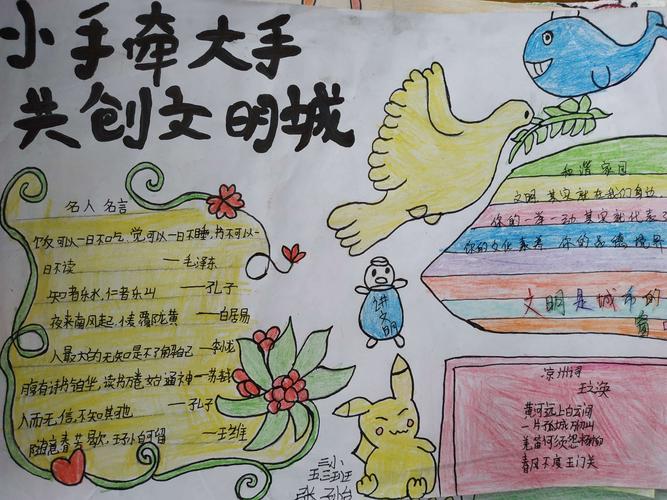 小手牵大手
共创文明城
名人名言
饭可以一日不吃，觉可以一日不睡，书不可以一
日不读 —毛泽东
知者乐水，仁者乐山 —孔子
夜来南风起，小麦覆陇黄 —白居易
人最大的无知是不了解自己
腹有诗书气自华，读书万卷始通神 —苏轼
人而无信，不知其可也 —孔子
随意春芳歇，王孙自可留 —王维
讲文明
和谐家园
文明 其实就在我们身边
你的一举一动 其实就代表
你的文化素养 你的道德
文明是城市的
凉州词
王之涣
黄河远上白云间
一片孤城万仞山
羌笛何须怨杨柳
春风不度玉门关
三小
五三班